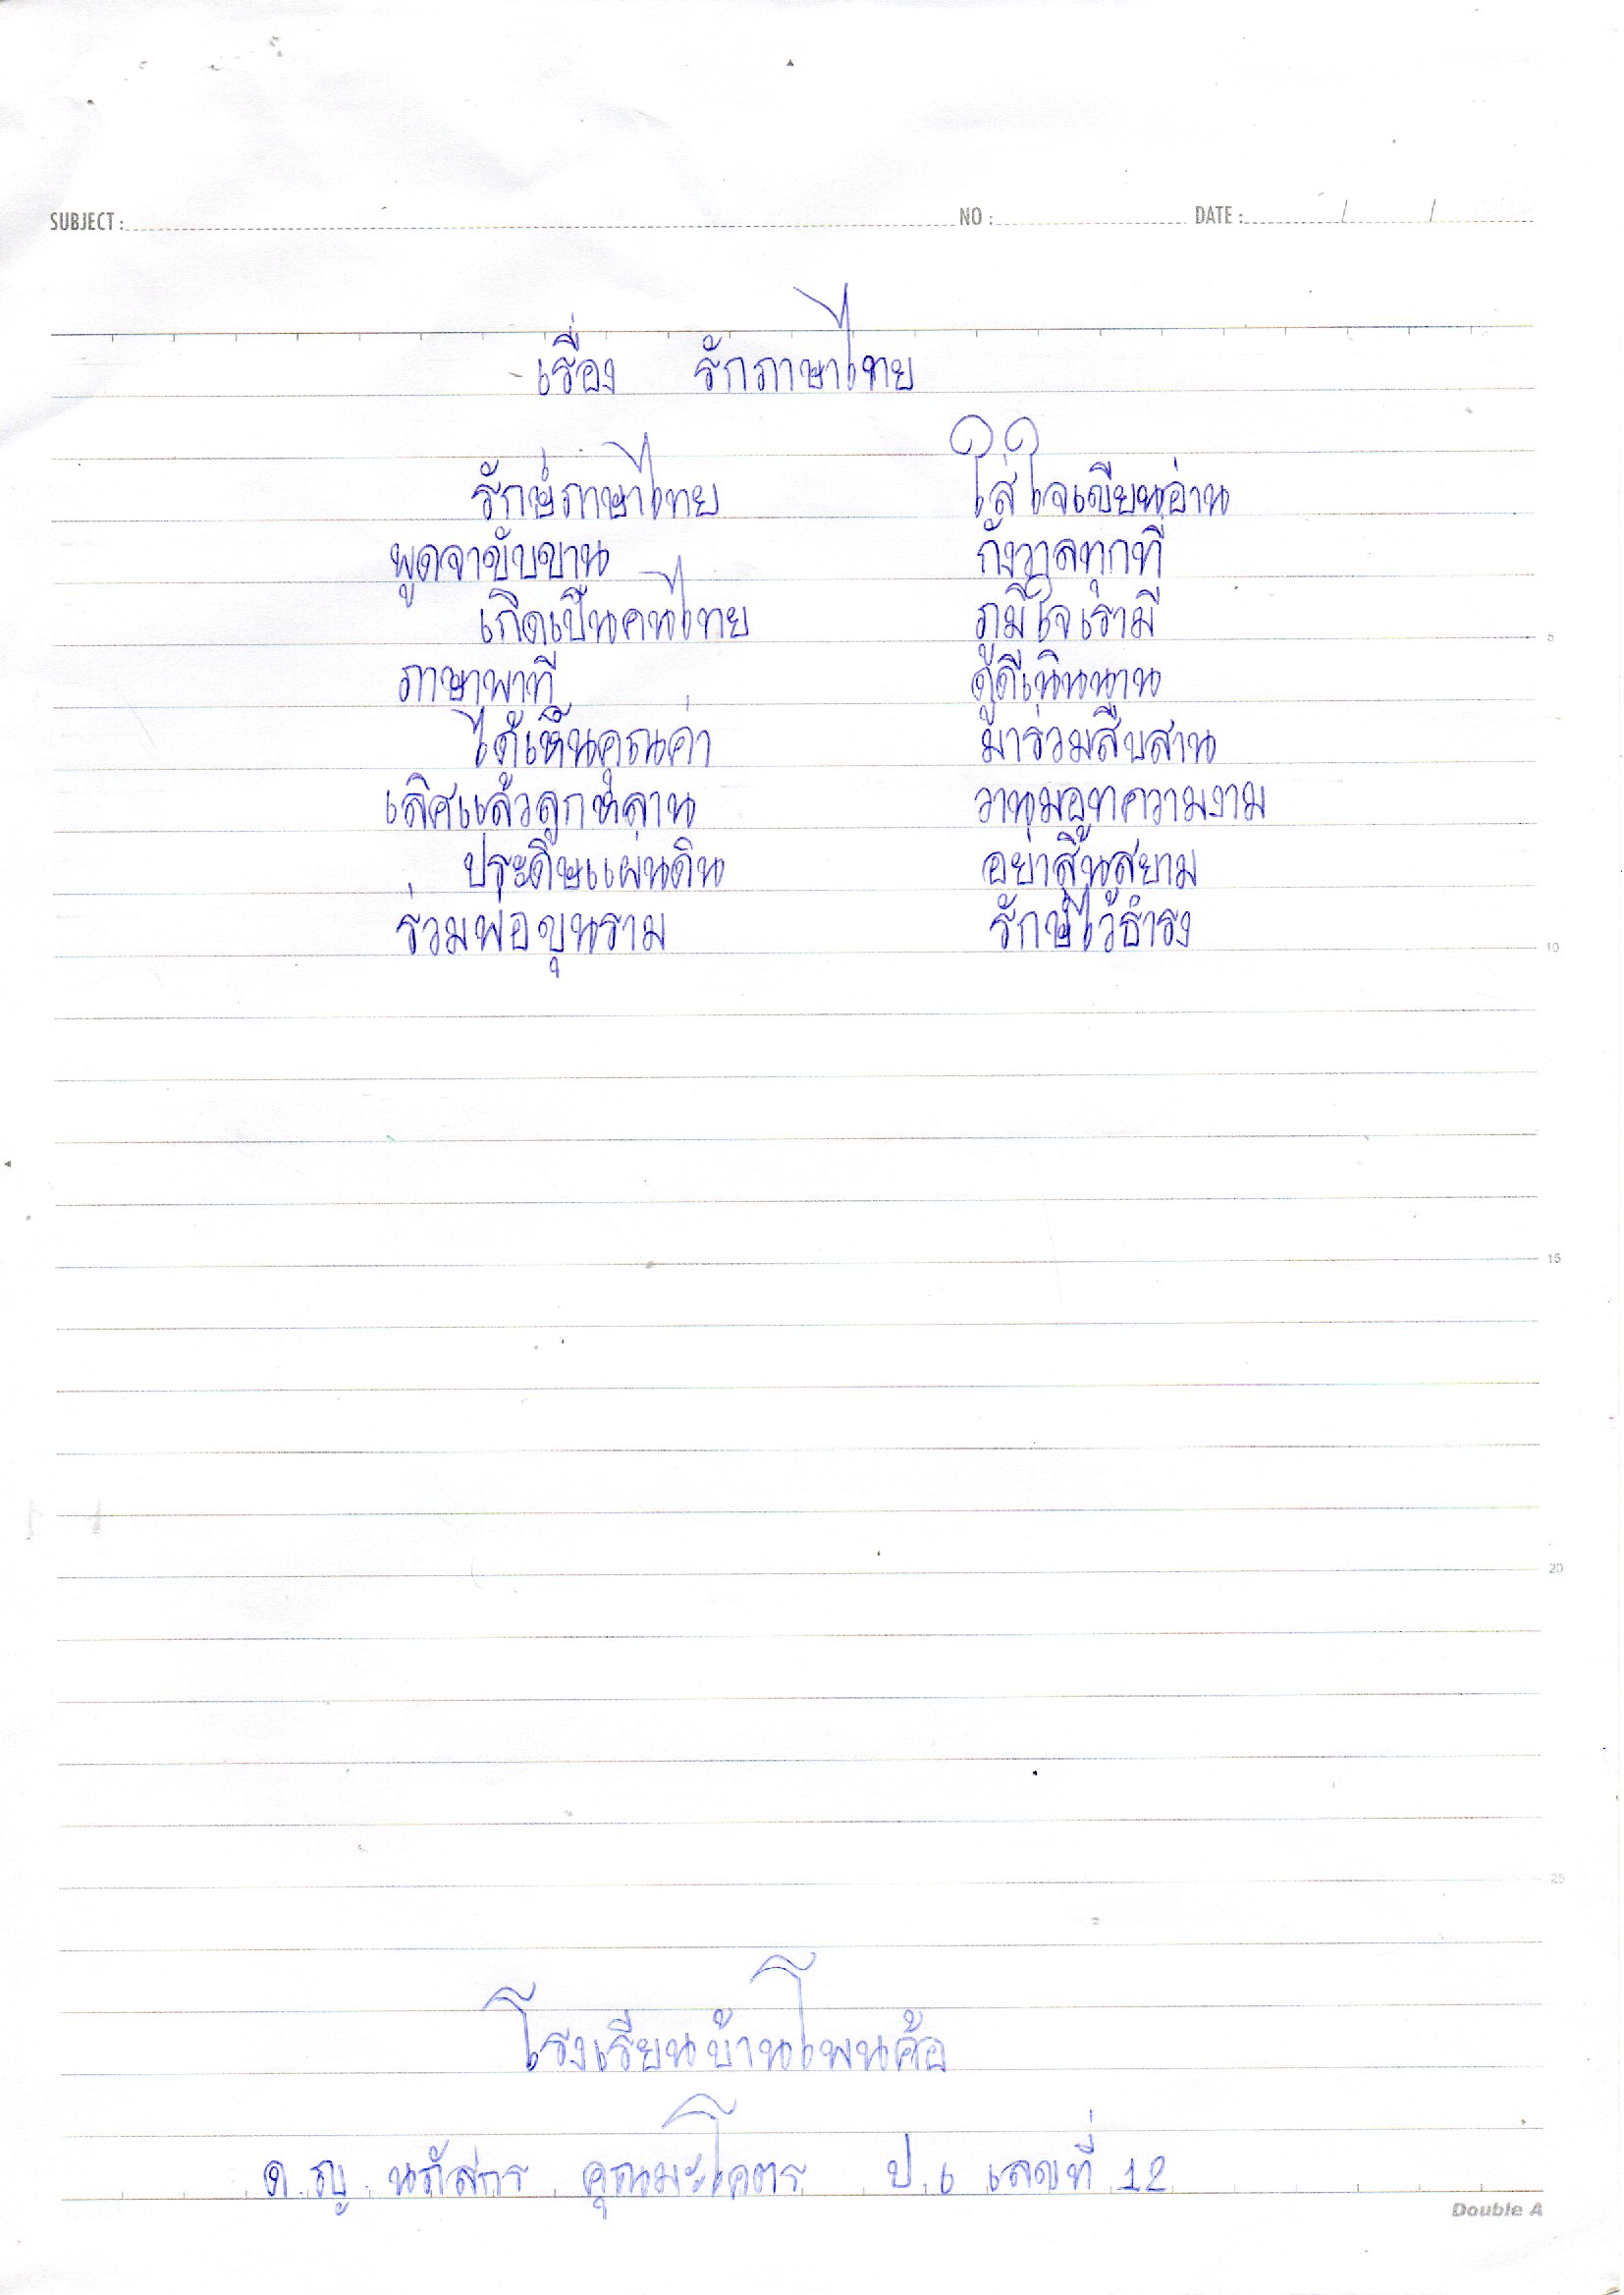 SUBJECT : NO : DATE : / /
เรื่อง รักภาษาไทย
รักษ์ภาษาไทย ใส่ใจเขียนอ่าน
พูดจาขับขาน กังวาลทุกที่
เกิดเป็นคนไทย ภูมิใจเรามี
ภาษาพาที ดูดีเนิ่นนาน
ได้เห็นคุณค่า มาร่วมสืบสาน
เลิศแล้วลูกหลาน วานมอบความงาม
ประดิษแผ่นดิน อย่าสิ้นสยาม
5
ร่วมพ่อขุนราม รักษ์ไว้ธำรง
10
15
20
25
โรงเรียนบ้านโพนค้อ
ด.ญ. นภัสกร คุณมะโคตร ป.6 เลขที่ 12
Double A